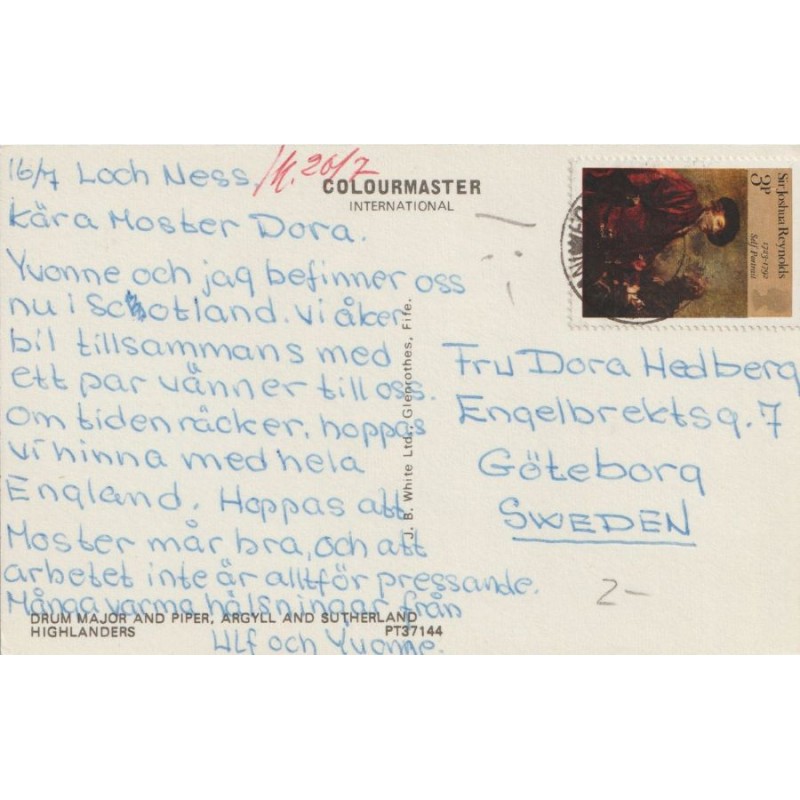 16/7 Loch Ness /M. 20/7
COLOURMASTER
INTERNATIONAL
Kära Moster Dora.
Yvonne och jag befinner oss
nu i Scotland. Vi åker
bil tillsammans med
ett par vänner till oss.
Om tiden räcker, hoppas
vi hinna med hela
England. Hoppas att
Moster mår bra, och att
arbetet inte är alltför pressande.
Många varma hälsningar från
Ulf och Yvonne.
DRUM MAJOR AND PIPER, ARGYLL AND SUTHERLAND
HIGHLANDERS PT37144
J. B. White Ltd., Glenrothes, Fife.
3P
Sir Joshua Reynolds
1723-1792
Self Portrait
Fru Dora Hedberg
Engelbrektsg. 7
Göteborg
SWEDEN
2-